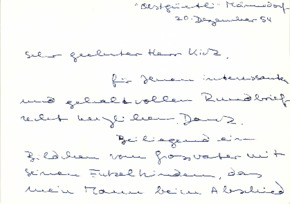 20. Dezember 54
Sehr geehrter Herr Kirz.
für Ihren interessanten
und gehaltvollen Rundbrief
recht herzlichen Dank.
Beiliegend ein
Bildchen vom Grossvater mit
seinen Enkelkindern, das
mein Mann beim Abschied